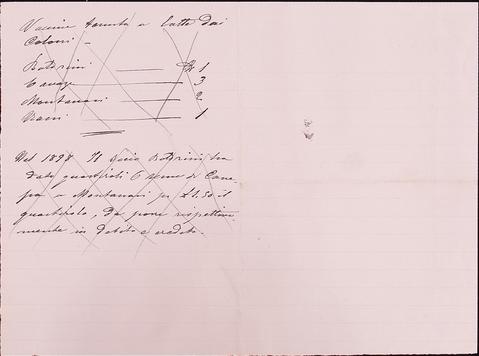 Vaccine tenute a latte dai
Coloni –
Rotorini —— N 1
Cavazza —— 3
Montanari —— 2
Nanni —— 1
Nel 1898 Il Socio Rotorini ha
dato quartiroli 6 seme di Cana-
pa a Montanari per £ 1.50 il
quartirolo, da porre rispettiva-
mente in debito e credito.